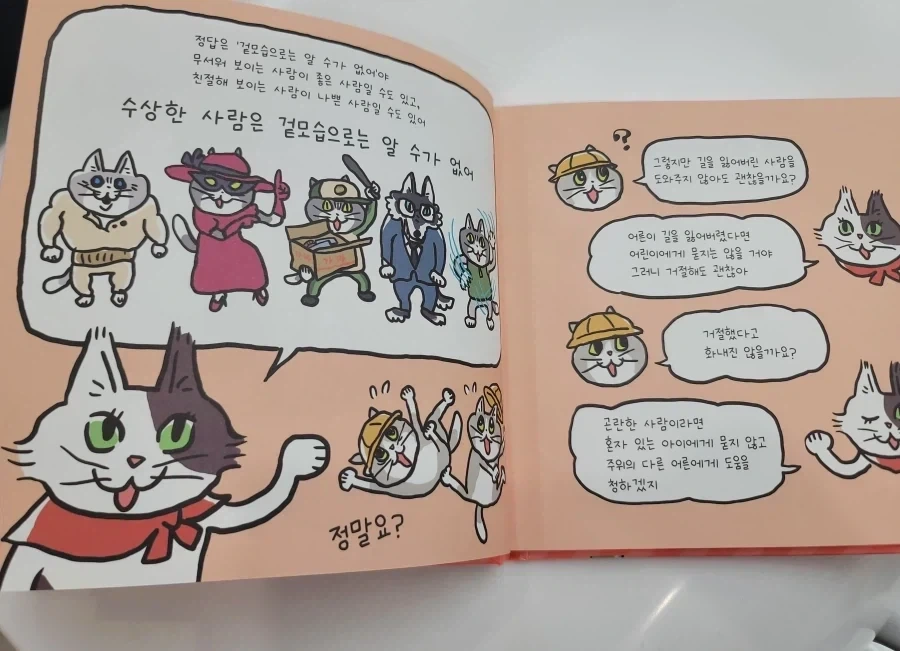 정답은 '겉모습으로는 알 수가 없어'야
무서워 보이는 사람이 좋은 사람일 수도 있고,
친절해 보이는 사람이 나쁜 사람일 수도 있어
수상한 사람은 겉모습으로는 알 수가 없어
정말요?
?
그렇지만 길을 잃어버린 사람을
도와주지 않아도 괜찮을까요?
어른이 길을 잃어버렸다면
어린이에게 묻지는 않을 거야
그러니 거절해도 괜찮아
거절했다고
화내진 않을까요?
곤란한 사람이라면
혼자 있는 아이에게 묻지 않고
주위의 다른 어른에게 도움을
청하겠지